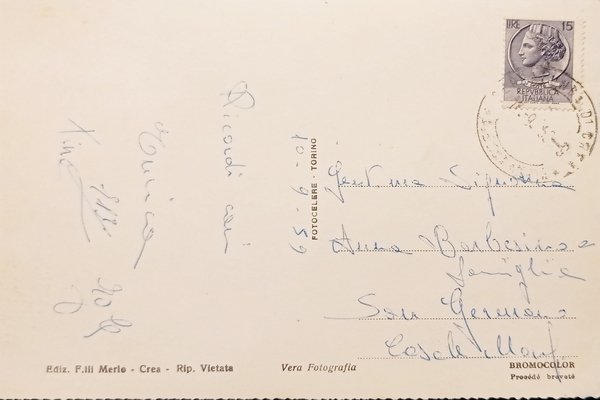 LIRE 15
REPVBBLICA
ITALIANA
Ricordi cari
Enrica
10-9-59
FOTOCELERE - TORINO
Gent.ma Signora
Anna Barbesino e
famiglia
San Germano
Casale Monf.
Ediz. F.lli Merlo - Crea - Rip. Vietata
Vera Fotografia
BROMOCOLOR
Procédé breveté